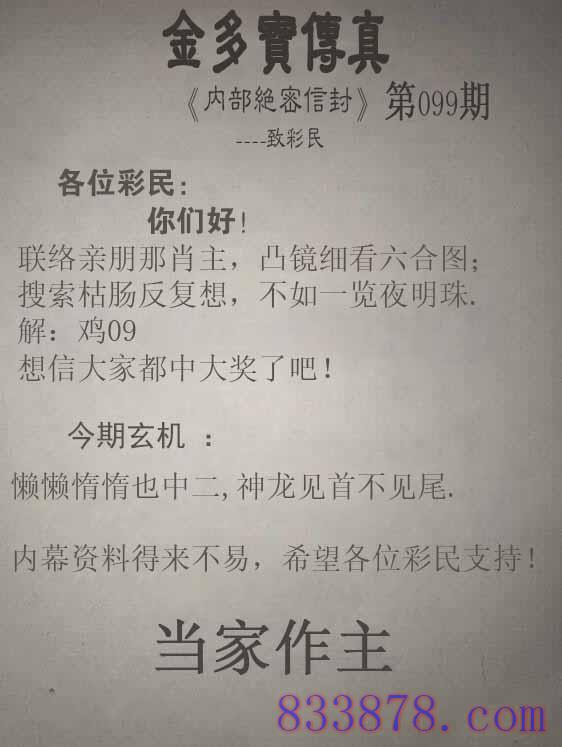 金多寶傳真
《内部絕密信封》第099期
----致彩民
各位彩民:
你们好!
联络亲朋那肖主，凸镜细看六合图;
搜索枯肠反复想，不如一览夜明珠.
解：鸡09
想信大家都中大奖了吧!
今期玄机 :
懒懒惰惰也中二,神龙见首不见尾.
内幕资料得来不易，希望各位彩民支持!
当家作主
833878.com